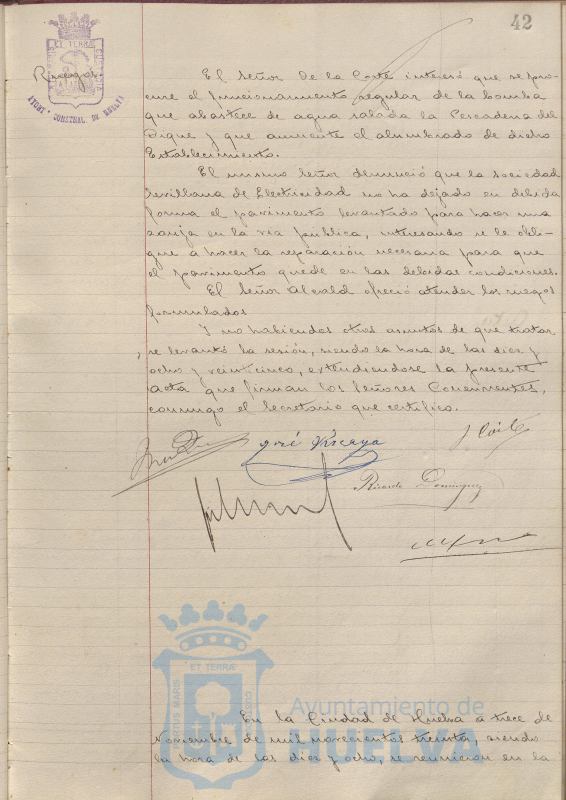 42
ET TERRÆ
AYUNT. CONSTNAL. DE HUELVA
Ruegos
El Señor De la Corte interesó que se pro-
cure el funcionamiento regular de la bomba
que abastece de agua salada la Pescaderia del
Dique y que aumente el alumbrado de dicho
Establecimiento.
El mismo Señor denunció que la sociedad
Sevillana de Electricidad no ha dejado en debida
forma el pavimento levantado para hacer una
zanja en la via pública, interesando se le obli-
gue a hacer la reparación necesaria para que
el pavimento quede en las debidas condiciones.
El Señor Alcalde ofreció atender los ruegos
formulados
Y no habiendos otros asuntos de que tratar
se levantó la sesión, siendo la hora de las diez y
ocho y veinticinco, extendiendose la presente
acta que firman los Señores Concurrentes,
conmigo el Secretario que certifico.
José Vizcaya
Ricardo Dominguez
PORTUS MARIS ET TERRÆ CUSTODIA
Ayuntamiento de
HUELVA
En la Ciudad de Huelva a trece de
Noviembre de mil novecientos treinta, siendo
la hora de las diez y ocho, se reunieron en la